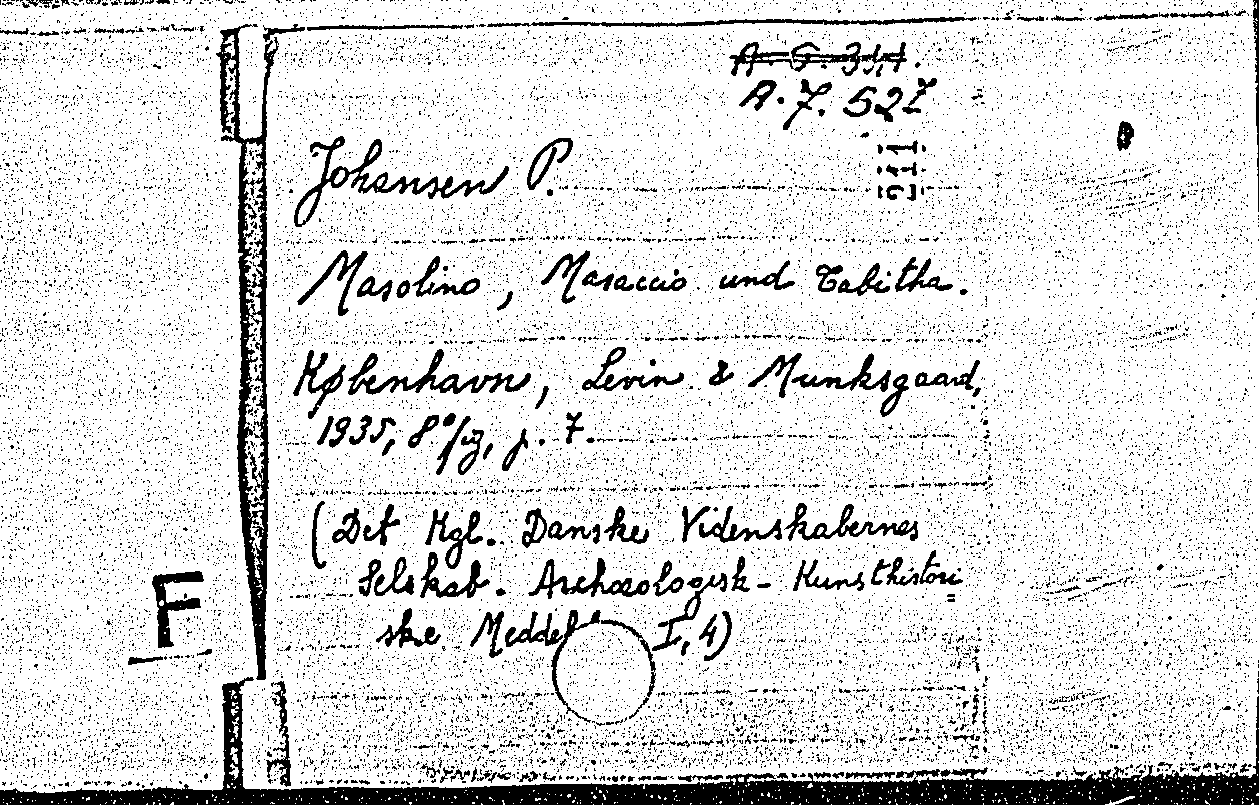 A. 7. 527
Johansen P.
Masolino, Masaccio und Tabitha.
København, Levin & Munksgaard,
1935, 8°/fig, p. 7.
(Det Kgl. Danske Videnskabernes
Selskab. Archæologisk - Kunsthistori=
ske I, 4)
F